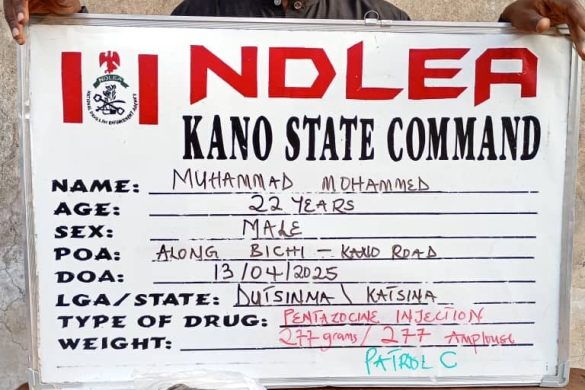 NDLEA
NDLEA
KANO STATE COMMAND
NAME: MUHAMMAD MOHAMMED
AGE: 22 YEARS
SEX: MALE
POA: ALONG BICHI - KANO ROAD
DOA: 13/04/2025
LGA/STATE: DUTSINMA \ KATSINA
TYPE OF DRUG: PENTAZOCINE INJECTION
WEIGHT: 277 grams / 277 Amplouse
PATROL C